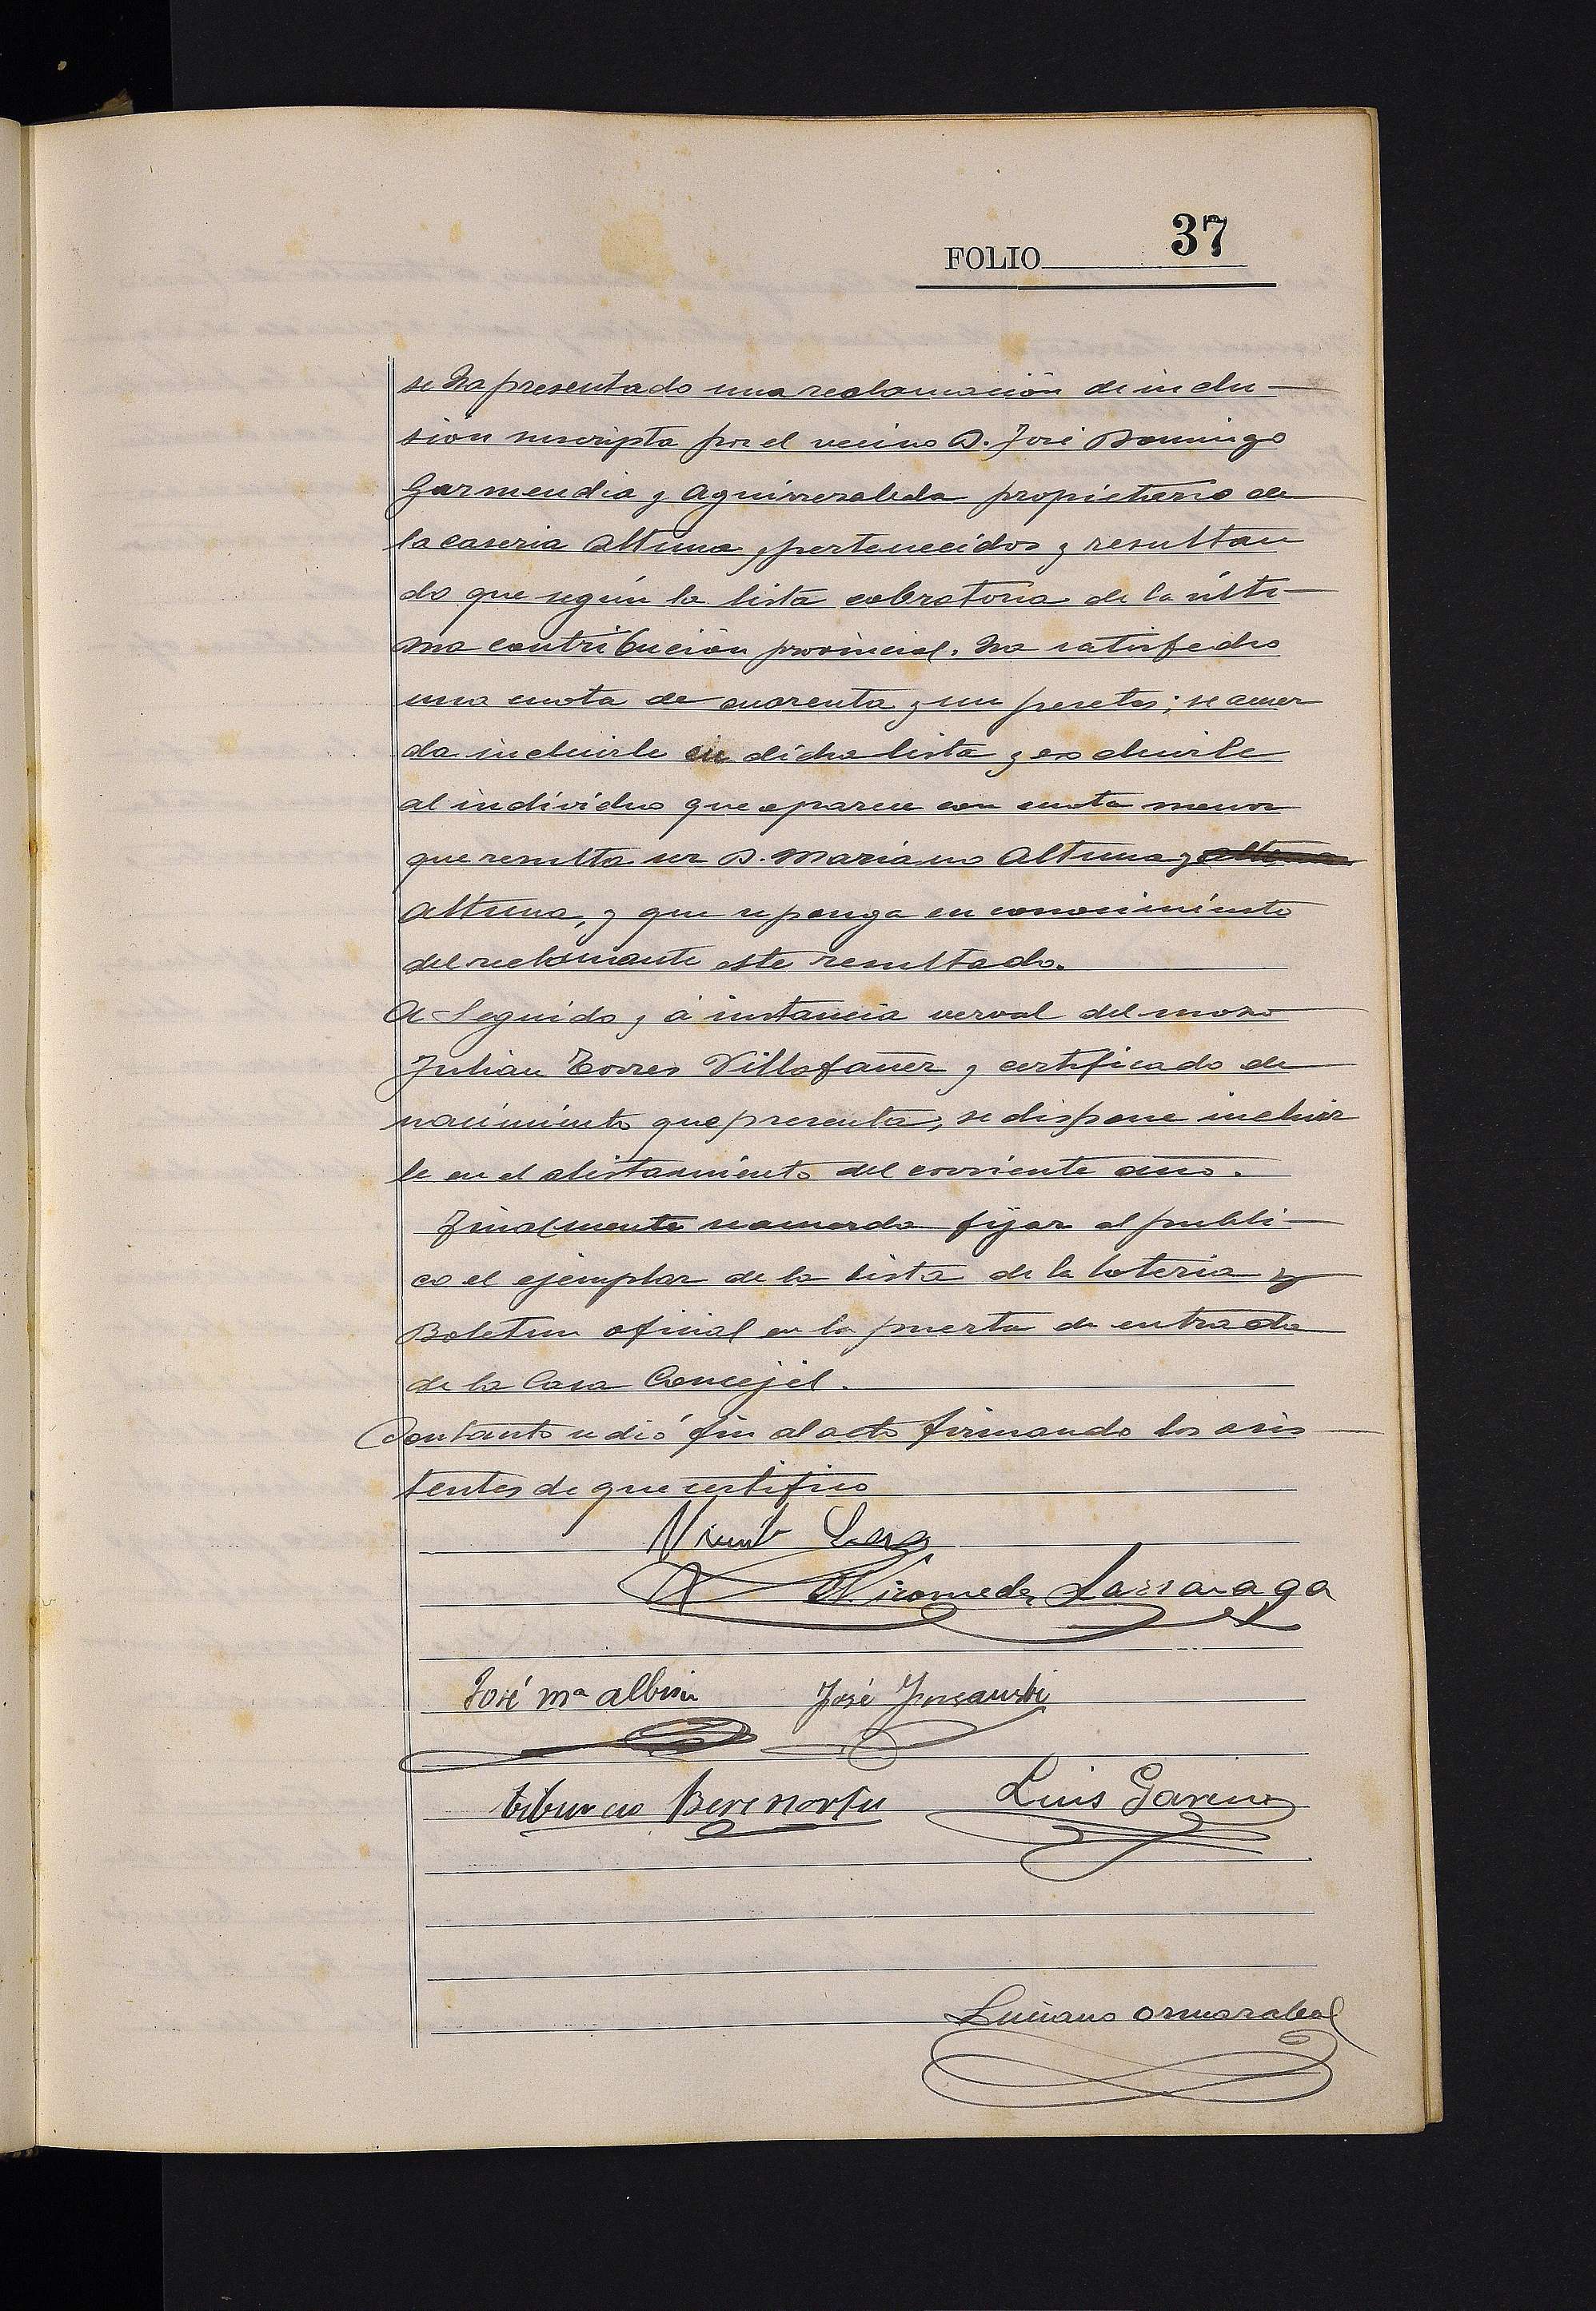 FOLIO 37
se ha presentado una reclamación de inclu-
sion suscripta por el vecino D. José Domingo
Garmendia y Aguirrezabala propietario de
la caseria Altuna y pertenecidos y resultan
do que según la lista cobratoria de la últi-
ma contribución provincial. ha satisfecho
una cuota de cuarenta y un pesetas; se acuer
da incluirle en dicha lista y excluirle
al individuo que aparece con cuota menor
que resulta ser D. Mariano Altuna y
Altuna, y que se ponga en conocimiento
del reclamante este resultado.
A Seguido y á instancia verval del mozo
Julian Torres Villafañez y certificado de
nacimiento que presenta, se dispone incluir
le en el alistamiento del corriente año.
Finalmente se acuerda fijar al publi-
co el ejemplar de la lista de la loteria y
Boletin oficial en la puerta de entrada
de la Casa Concejil.
Con tanto se dió fin al acto firmando los asis
tentes de que certifico
Nicomedes Larrañaga
José Mª Albisu José
tiburcio Luis
Luciano Ormazabal